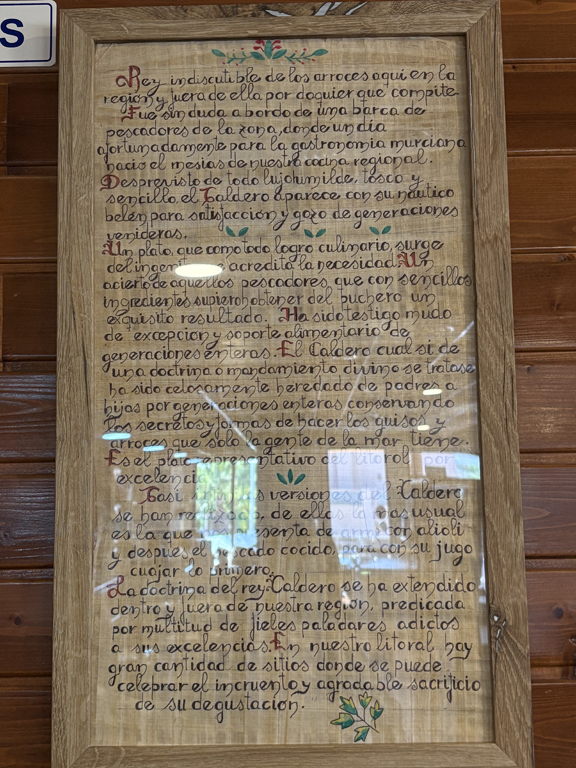 S
Rey indiscutible de los arroces aqui en la
region y fuera de ella por doquier que compite.
Fue sin duda a bordo de una barca de
pescadores de la zona, donde un dia
afortunadamente para la gastronomia murciana
nacio el mesias de nuestra cocina regional.
Desprevisto de todo lujo humilde, tosco y
sencillo, el Caldero aparece con su naútico
belén para satisfacción y gozo de generaciones
venideras.
Un plato, que como todo logro culinario, surge
del acredita la necesidad. Un
acierto de aquellos pescadores que con sencillos
ingredientes supieron obtener del puchero un
exquisito resultado. Ha sido testigo mudo
de excepcion y soporte alimentario de
generaciones enteras. El Caldero cual si de
una doctrina o mandamiento divino se tratase
ha sido celosamente heredado de padres a
hijos por generaciones enteras conservando
los secretos y formas de hacer los guisos y
arroces que solo la gente de la mar tiene.
Es el plato representativo del litoral por
excelencia
versiones del Caldero
se han de ellos la mas usual
es la que con alioli
y despues el pescado cocido, para con su jugo
cuajar lo primero.
La doctrina del rey Caldero se ha extendido
dentro y fuera de nuestra región, predicada
por multitud de fieles paladares adictos
a sus excelencias. En nuestro litoral hay
gran cantidad de sitios donde se puede
celebrar el incruento y agradable sacrificio
de su degustación.